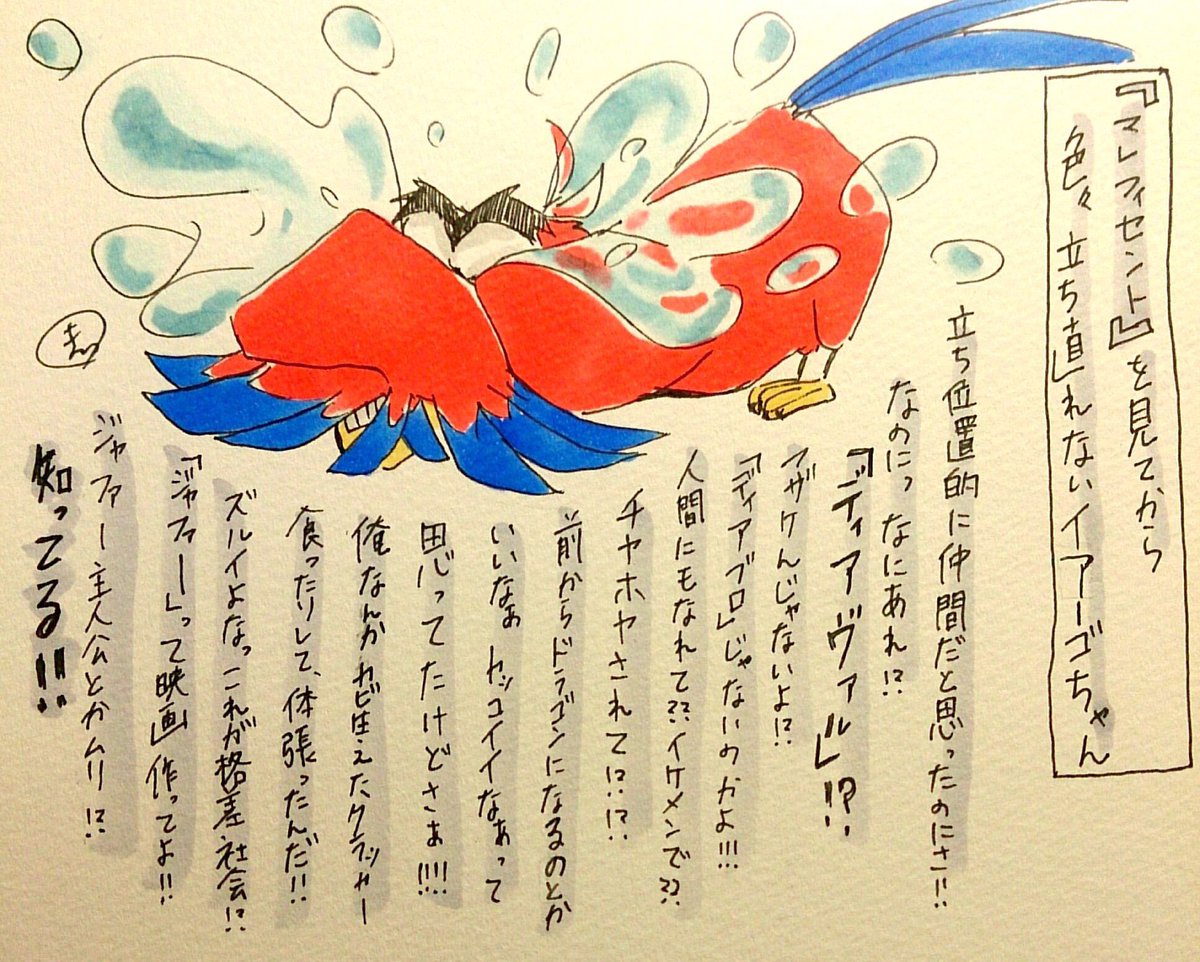 『マレフィセント』を見てから
色々立ち直れないイアーゴちゃん
立ち位置的に仲間だと思ったのにさ!!
なのにっなにあれ!?
「ディアヴァル」!?
フザケんじゃないよ!?
「ディアブロ」じゃないのかよ!!!
人間にもなれて??イケメンで??
チヤホヤされて!?!?
前からドラゴンになるのとか
いいなぁカッコイイなぁって
思ってたけどさぁ!!!!
俺なんかカビ生えたクラッカー
食ったりして、体張ったんだ!!
ズルイよなっこれが格差社会!?
「ジャファー」って映画作ってよ!!
ジャファー主人公とかムリ!?
知ってる!!